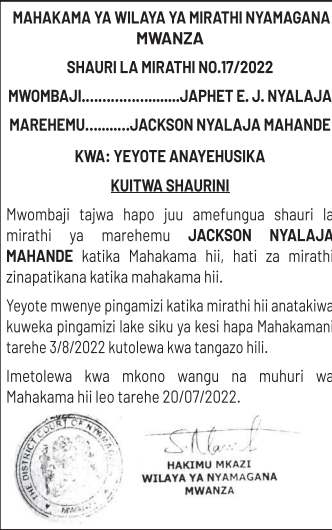 MAHAKAMA YA WILAYA YA MIRATHI NYAMAGANA
MWANZA
SHAURI LA MIRATHI NO.17/2022
MWOMBAJI........................JAPHET E. J. NYALAJA
MAREHEMU...........JACKSON NYALAJA MAHANDE
KWA: YEYOTE ANAYEHUSIKA
KUITWA SHAURINI
Mwombaji tajwa hapo juu amefungua shauri la
mirathi ya marehemu JACKSON NYALAJA
MAHANDE katika Mahakama hii, hati za mirathi
zinapatikana katika mahakama hii.
Yeyote mwenye pingamizi katika mirathi hii anatakiwa
kuweka pingamizi lake siku ya kesi hapa Mahakamani
tarehe 3/8/2022 kutolewa kwa tangazo hili.
Imetolewa kwa mkono wangu na muhuri wa
Mahakama hii leo tarehe 20/07/2022.
THE DISTRICT COURT OF
HAKIMU MKAZI
WILAYA YA NYAMAGANA
MWANZA